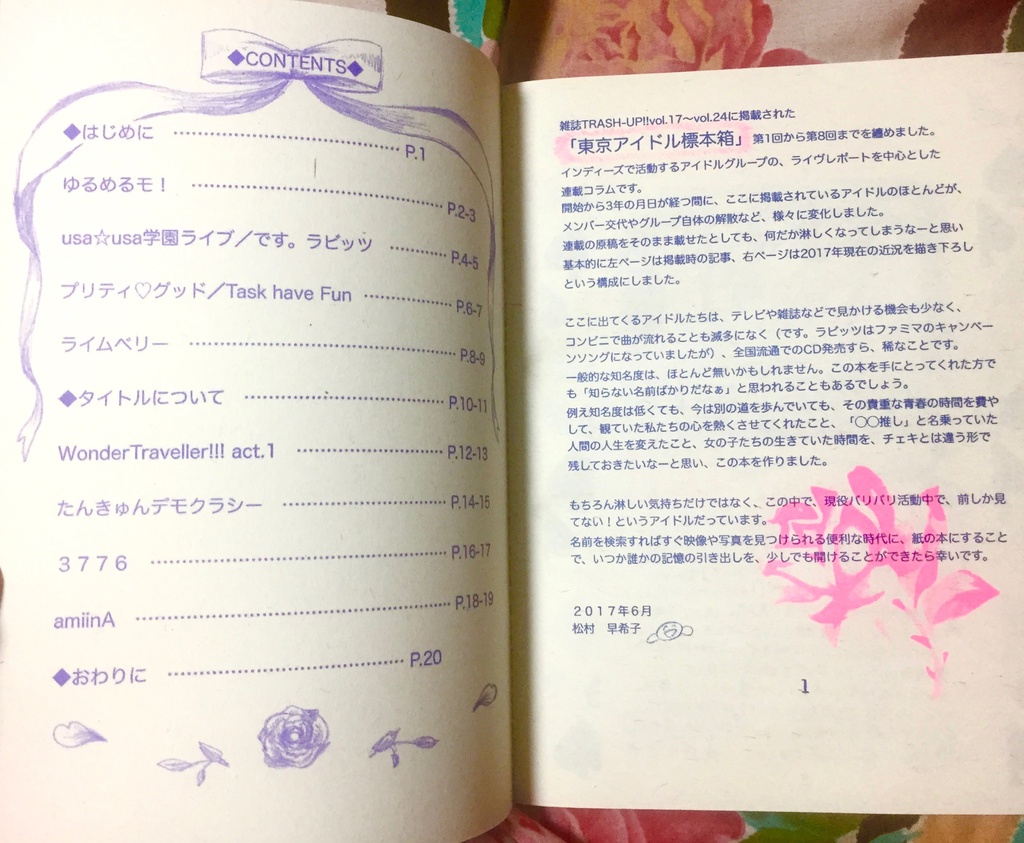 ◆CONTENTS◆
◆はじめに ………………… P.1
ゆるめるモ！ ………………… P.2-3
usa☆usa学園ライブ／です。ラビッツ ……… P.4-5
プリティ♡グッド／Task have Fun ……… P.6-7
ライムベリー ………………… P.8-9
◆タイトルについて ………………… P.10-11
WonderTraveller!!! act.1 ………………… P.12-13
たんきゅんデモクラシー ………………… P.14-15
３７７６ ………………… P.16-17
amiinA ………………… P.18-19
◆おわりに ………………… P.20
雑誌TRASH-UP!!vol.17〜vol.24に掲載された
「東京アイドル標本箱」第1回から第8回までを纏めました。
インディーズで活動するアイドルグループの、ライヴレポートを中心とした
連載コラムです。
開始から3年の月日が経つ間に、ここに掲載されているアイドルのほとんどが、
メンバー交代やグループ自体の解散など、様々に変化しました。
連載の原稿をそのまま載せたとしても、何だか淋しくなってしまうなーと思い
基本的に左ページは掲載時の記事、右ページは2017年現在の近況を描き下ろし
という構成にしました。
ここに出てくるアイドルたちは、テレビや雑誌などで見かける機会も少なく、
コンビニで曲が流れることも滅多になく（です。ラビッツはファミマのキャンペー
ンソングになっていましたが）、全国流通でのCD発売すら、稀なことです。
一般的な知名度は、ほとんど無いかもしれません。この本を手にとってくれた方で
も「知らない名前ばかりだなぁ」と思われることもあるでしょう。
例え知名度は低くても、今は別の道を歩んでいても、その貴重な青春の時間を費や
して、観ていた私たちの心を熱くさせてくれたこと、「○○推し」と名乗っていた
人間の人生を変えたこと、女の子たちの生きていた時間を、チェキとは違う形で
残しておきたいなーと思い、この本を作りました。
もちろん淋しい気持ちだけではなく、この中で、現役バリバリ活動中で、前しか見
てない！というアイドルだっています。
名前を検索すればすぐ映像や写真を見つけられる便利な時代に、紙の本にすること
で、いつか誰かの記憶の引き出しを、少しでも開けることができたら幸いです。
２０１７年６月
松村　早希子
1